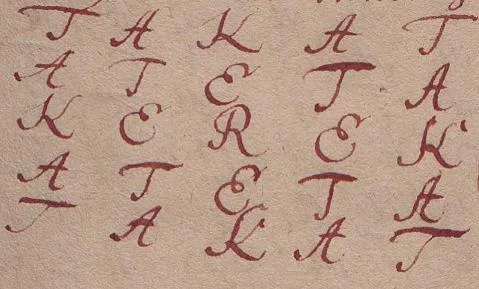 T A K A T
A T E T A
K E R E K
A T E T A
T A K A T